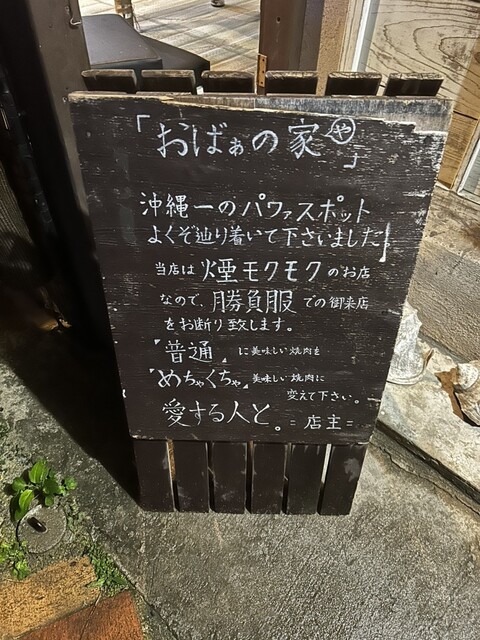 「おばぁの家 や」
沖縄一のパワァスポット
よくぞ辿り着いて下さいました!
当店は 煙モクモクのお店
なので、勝負服での御来店
をお断り致します。
"普通"に美味しい焼肉を
"めちゃくちゃ"美味しい焼肉に
変えて下さい。
愛する人と。=店主=